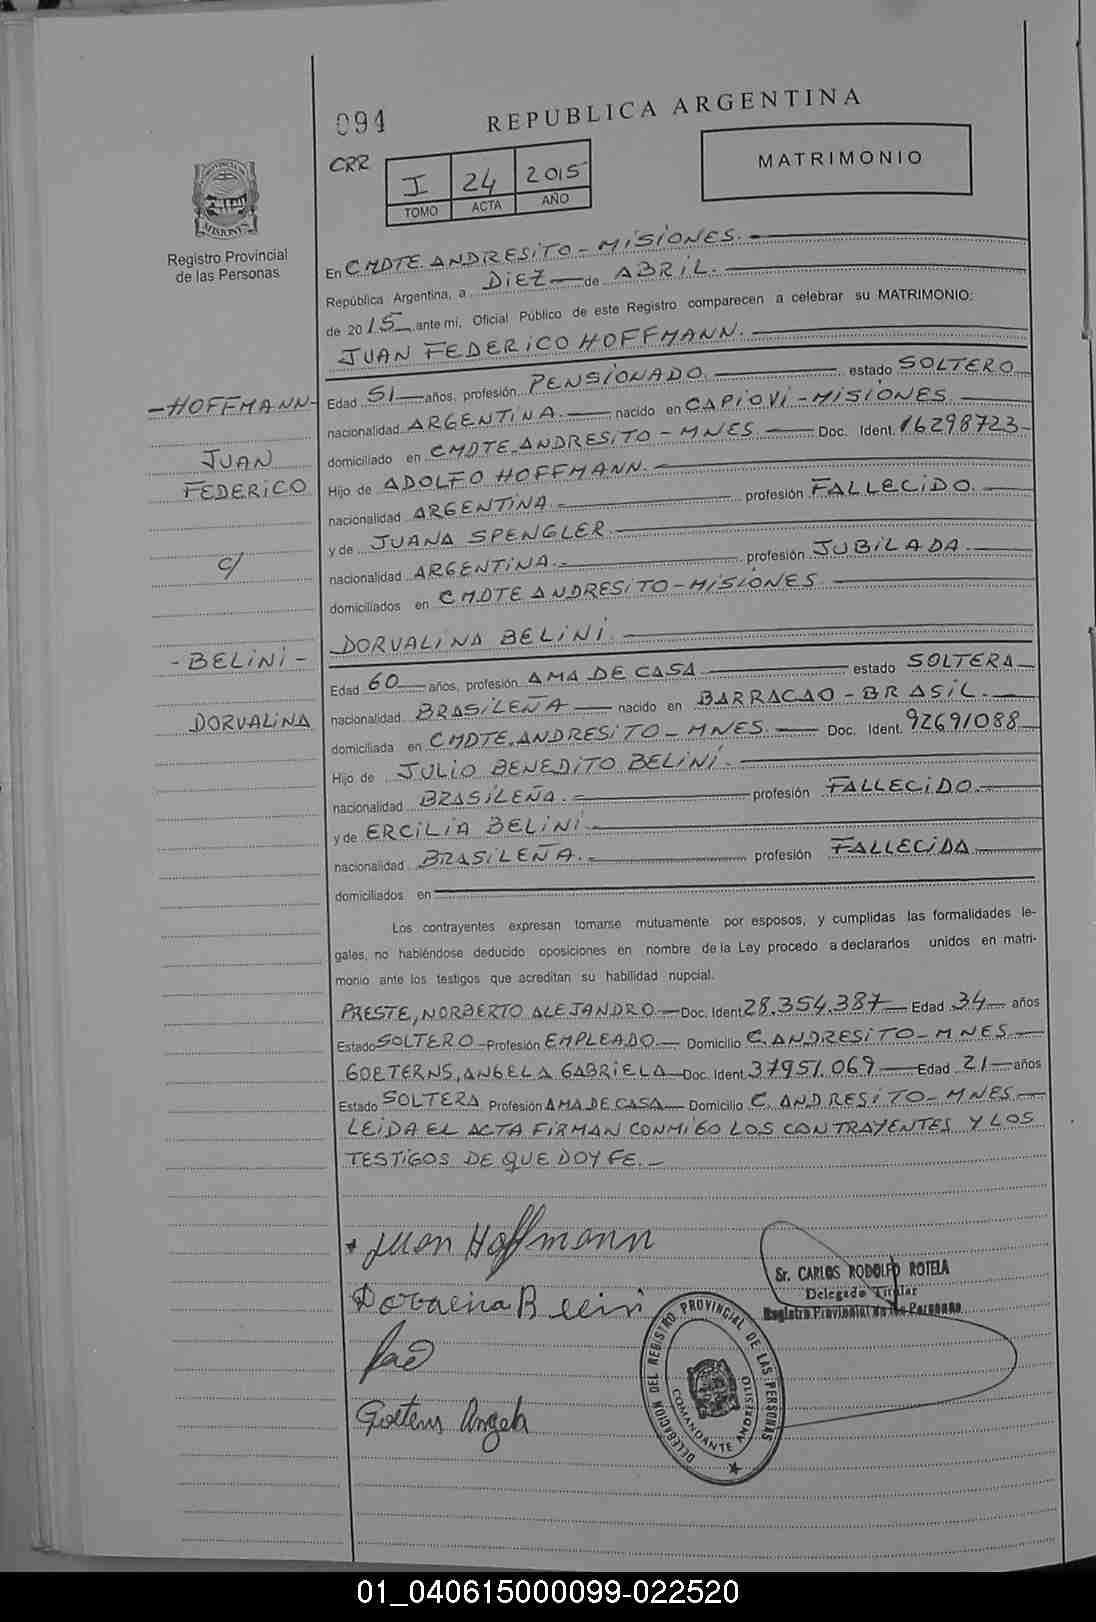 094
REPUBLICA ARGENTINA
CRR
I 24 2015
TOMO ACTA AÑO
MATRIMONIO
PROVINCIA
MISIONES
Registro Provincial
de las Personas
En CMDTE ANDRESITO - MISIONES.
República Argentina, a DIEZ de ABRIL.
de 2015 ante mí, Oficial Público de este Registro comparecen a celebrar su MATRIMONIO:
JUAN FEDERICO HOFFMANN.
Edad 51 años, profesión PENSIONADO. estado SOLTERO
- HOFFMANN -
nacionalidad ARGENTINA. nacido en CAPIOVI - MISIONES
domiciliado en CMDTE. ANDRESITO - MNES Doc. Ident. 16298723
JUAN
FEDERICO
Hijo de ADOLFO HOFFMANN.
nacionalidad ARGENTINA. profesión FALLECIDO.
y de JUANA SPENGLER.
c/
nacionalidad ARGENTINA. profesión JUBILADA.
domiciliados en CMDTE ANDRESITO - MISIONES
DORVALINA BELINI.
- BELINI -
Edad 60 años, profesión AMA DE CASA estado SOLTERA
nacionalidad BRASILEÑA nacido en BARRACAO - BRASIL.
DORVALINA
domiciliada en CMDTE. ANDRESITO - MNES. Doc. Ident. 92691088
Hijo de JULIO BENEDITO BELINI.
nacionalidad BRASILEÑA. profesión FALLECIDO.
y de ERCILIA BELINI
nacionalidad BRASILEÑA. profesión FALLECIDA
domiciliados en
Los contrayentes expresan tomarse mutuamente por esposos, y cumplidas las formalidades le-
gales, no habiéndose deducido oposiciones en nombre de la Ley procedo a declararlos unidos en matri-
monio ante los testigos que acreditan su habilidad nupcial.
PRESTE, NORBERTO ALEJANDRO Doc. Ident. 28.354.387 Edad 34 años
Estado SOLTERO Profesión EMPLEADO Domicilio C. ANDRESITO - MNES
GOETERNS, ANGELA GABRIELA Doc. Ident. 37951.069 Edad 21 años
Estado SOLTERA Profesión AMA DE CASA Domicilio C. ANDRESITO - MNES
LEIDA EL ACTA FIRMAN CONMIGO LOS CONTRAYENTES Y LOS
TESTIGOS DE QUE DOY FE. -
Juan Hoffmann
Sr. CARLOS RODOLFO ROTELA
Delegado Titular
Registro Provincial de las Personas
Dorvalina Belini
DELEGACION DEL REGISTRO PROVINCIAL DE LAS PERSONAS
COMANDANTE ANDRESITO
Goeterns Angela
01_040615000099-022520